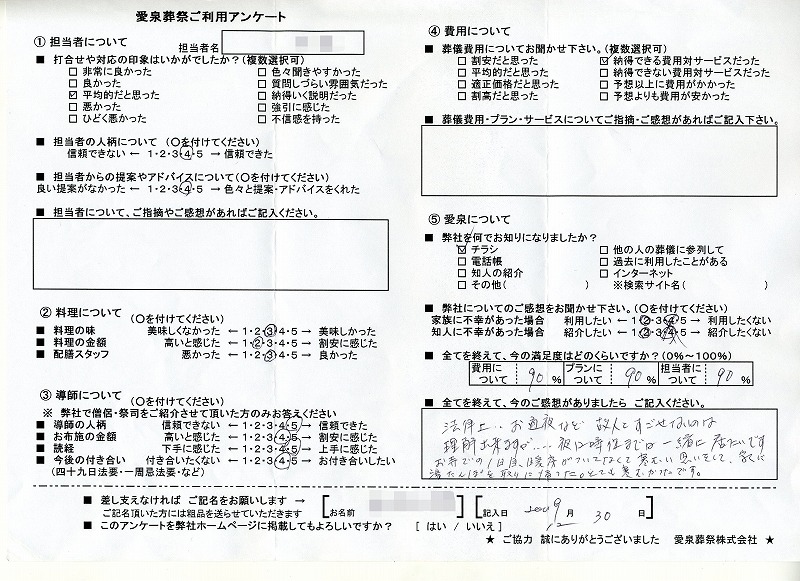 愛泉葬祭ご利用アンケート
① 担当者について
担当者名
■ 打合せや対応の印象はいかがでしたか?(複数選択可)
□ 非常に良かった □ 色々聞きやすかった
□ 良かった □ 質問しづらい雰囲気だった
☑ 平均的だと思った □ 納得いく説明だった
□ 悪かった □ 強引に感じた
□ ひどく悪かった □ 不信感を持った
■ 担当者の人柄について (〇を付けてください)
信頼できない ← 1・2・3・4・5 → 信頼できた
■ 担当者からの提案やアドバイスについて(〇を付けてください)
良い提案がなかった ← 1・2・3・4・5 → 色々と提案・アドバイスをくれた
■ 担当者について、ご指摘やご感想があればご記入ください。
② 料理について (〇を付けてください)
■ 料理の味 美味しくなかった ← 1・2・3・4・5 → 美味しかった
■ 料理の金額 高いと感じた ← 1・2・3・4・5 → 割安に感じた
■ 配膳スタッフ 悪かった ← 1・2・3・4・5 → 良かった
③ 導師について (〇を付けてください)
※ 弊社で僧侶・祭司をご紹介させて頂いた方のみお答えください
■ 導師の人柄 信頼できない ← 1・2・3・4・5 → 信頼できた
■ お布施の金額 高いと感じた ← 1・2・3・4・5 → 割安に感じた
■ 読経 下手に感じた ← 1・2・3・4・5 → 上手に感じた
■ 今後の付き合い 付き合いたくない ← 1・2・3・4・5 → お付き合いしたい
(四十九日法要・一周忌法要・など)
④ 費用について
■ 葬儀費用についてお聞かせ下さい。(複数選択可)
□ 割安だと思った ☑ 納得できる費用対サービスだった
□ 平均的だと思った □ 納得できない費用対サービスだった
□ 適正価格だと思った □ 予想以上に費用がかかった
□ 割高だと思った □ 予想よりも費用が安かった
■ 葬儀費用・プラン・サービスについてご指摘・ご感想があればご記入下さい。
⑤ 愛泉について
■ 弊社を何でお知りになりましたか?
☑ チラシ □ 他の人の葬儀に参列して
□ 電話帳 □ 過去に利用したことがある
□ 知人の紹介 □ インターネット
□ その他( ) ※検索サイト名( )
■ 弊社についてのご感想をお聞かせ下さい。(〇を付けてください)
家族に不幸があった場合 利用したい ← 1・2・3・4・5 → 利用したくない
知人に不幸があった場合 紹介したい ← 1・2・3・4・5 → 紹介したくない
■ 全てを終えて、今の満足度はどのくらいですか?(0%~100%)
費用について 90 % プランについて 90 % 担当者について 90 %
■ 全てを終えて、今のご感想がありましたら ご記入ください。
法律上‥お通夜など 故人とすごせないのは
理解出来ますが‥‥夜に時位までが一緒に居たいです
お寺での1日目、暖房がついてなくて寒い思いをして、家に
湯たんぽを取りに帰った。とても寒むかったです。
■ 差し支えなければ ご記名をお願いします →
ご記名頂いた方には粗品を送らせていただきます
[お名前 ] [記入日 2009 月 30 日]
■ このアンケートを弊社ホームページに掲載してもよろしいですか? [ はい / いいえ ]
★ ご協力 誠にありがとうございました 愛泉葬祭株式会社 ★